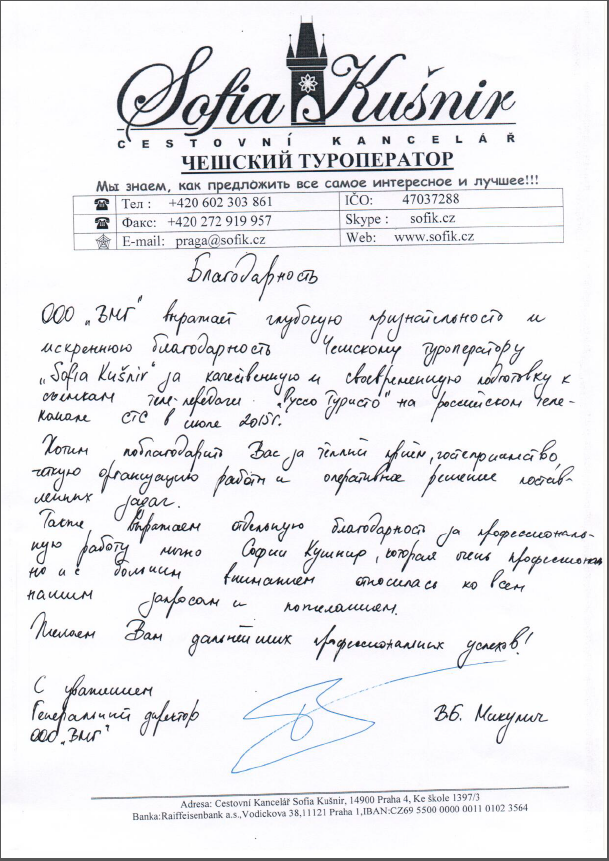 Sofia Kušnir
CESTOVNÍ KANCELÁŘ
ЧЕШСКИЙ ТУРОПЕРАТОР
Мы знаем, как предложить все самое интересное и лучшее!!!
☎ Тел : +420 602 303 861 IČO: 47037288
☎ Факс: +420 272 919 957 Skype : sofik.cz
E-mail: praga@sofik.cz Web: www.sofik.cz
Благодарность
ООО „ВМГ" выражает глубокую признательность и
искреннюю благодарность Чешскому туроператору
„Sofia Kušnir" за качественную и своевременную подготовку к
съемкам теле-передачи „Руссо Туристо" на российском теле-
канале СТС в июле 2015г.
Хотим поблагодарить Вас за тёплый приём, гостеприимство,
чёткую организацию работы и оперативное решение постав-
ленных задач.
Также, выражаем отдельную благодарность за профессиональ-
ную работу лично Софии Кушнир, которая очень профессиональ
но и с большим вниманием относилась ко всем
нашим запросам и пожеланием.
Желаем Вам дальнейших профессиональных успехов!
С уважением
Генеральный директор В.Б. Микулич
ООО „ВМГ"
Adresa: Cestovní Kancelář Sofia Kušnir, 14900 Praha 4, Ke škole 1397/3
Banka:Raiffeisenbank a.s.,Vodickova 38,11121 Praha 1,IBAN:CZ69 5500 0000 0011 0102 3564